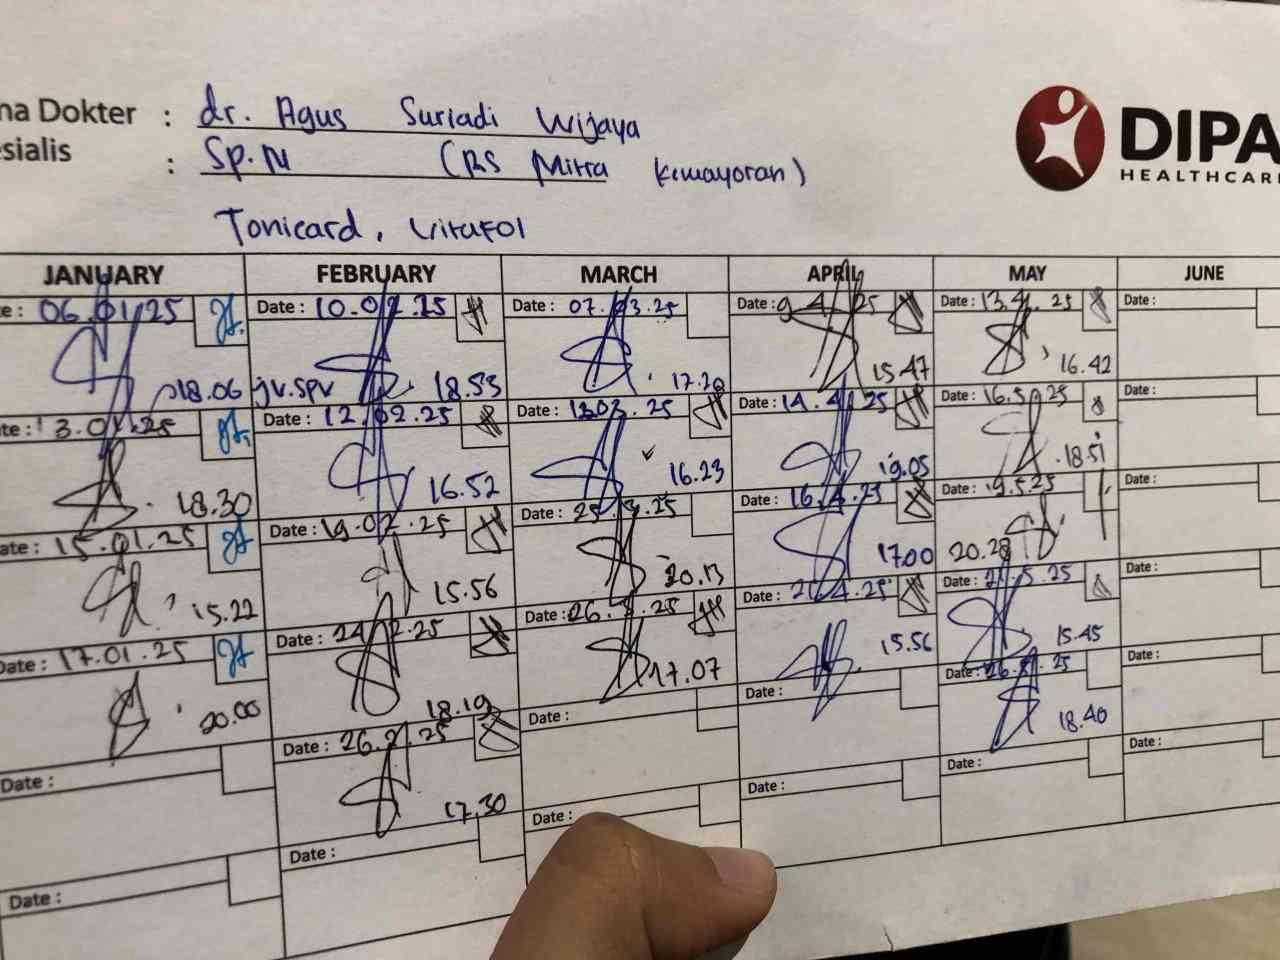 na Dokter : dr. Agus Suriadi Wijaya
esialis : Sp.N (RS Mitra Kemayoran)
DIPA
HEALTHCAR
Tonicard, Vitafol
JANUARY FEBRUARY MARCH APRIL MAY JUNE
e: 06.01.25 Date: 10.02.25 Date: 07.03.25 Date: 9.4.25 Date: 13.4.25 Date:
18.06 jv.spv 18.53 17.20 15.47 16.42
te: 13.01.25 Date: 12.02.25 Date: 1303.25 Date: 14.4.25 Date: 16.5.25 Date:
18.30 16.52 16.23 19.05 18.51
ate: 15.01.25 Date: 19.02.25 Date: 25.3.25 Date: 16.4.25 Date: 19.5.25 Date:
15.22 15.56 20.13 1700 20.28
Date: 17.01.25 Date: 24.02.25 Date: 26.3.25 Date: 21.4.25 Date: 21.5.25 Date:
20.00 18.19 17.07 15.56 15.45
Date: Date: 26.2.25 Date: Date: Date: 26.5.25 Date:
17.30 18.40
Date: Date: Date: Date: Date: Date: